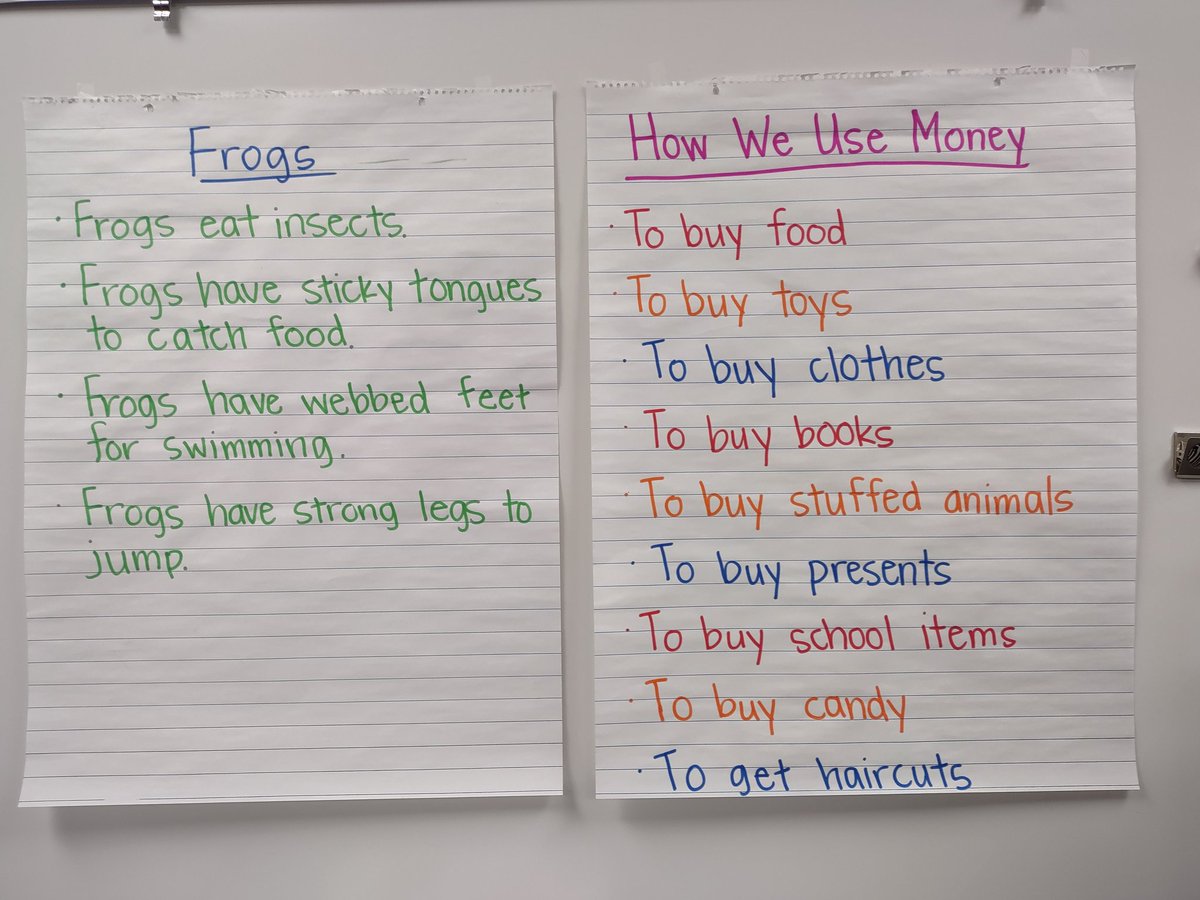 Frogs
· Frogs eat insects.
· Frogs have sticky tongues
to catch food.
· Frogs have webbed feet
for swimming.
· Frogs have strong legs to
jump.
How We Use Money
· To buy food
· To buy toys
· To buy clothes
· To buy books
· To buy stuffed animals
· To buy presents
· To buy school items
· To buy candy
· To get haircuts